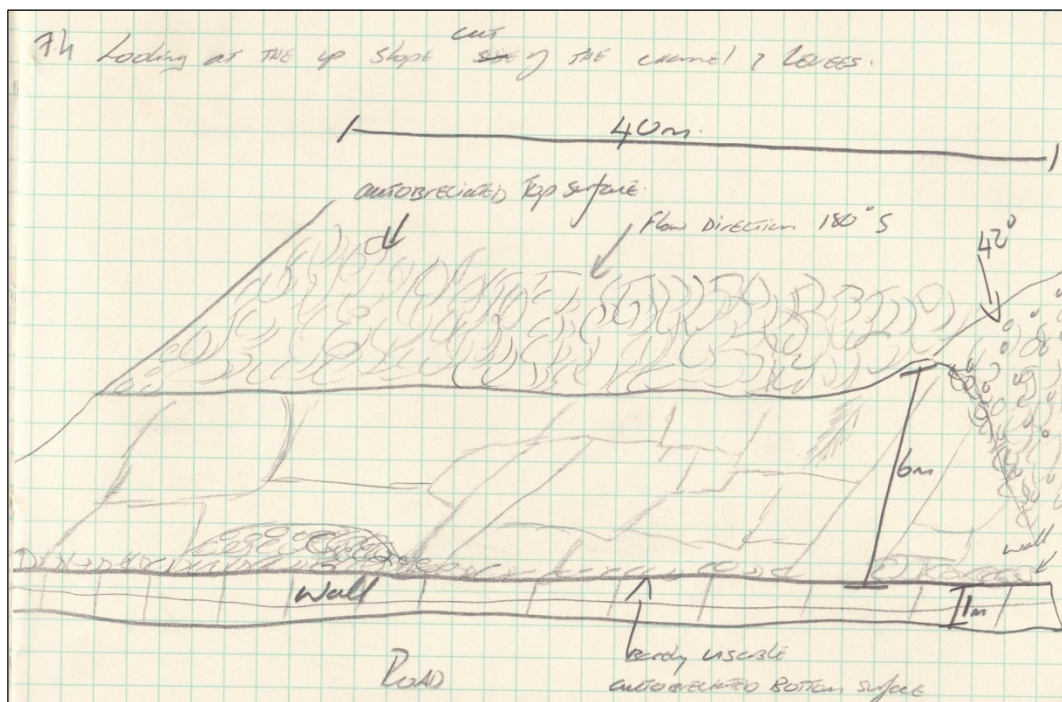 7.4 Looking at the up slope cut side of the channel & Levees.
40m.
autobreciated Top surface.
Flow Direction 180° S
42°
6m
wall
Wall
1m
Road
Barely visable
autobreciated Bottom surface